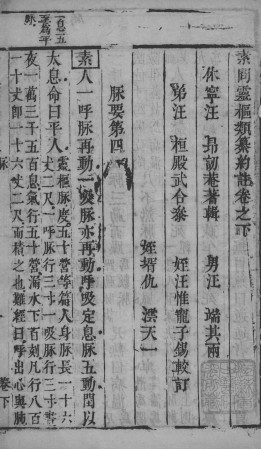 素問靈樞類纂約註卷之下
休寧汪 昂訒菴著輯 男汪 端其兩
弟汪 桓殿武仝叅 姪汪惟寵子錫較訂
姪壻仇 澐天一
脉要第四
素人一呼脉再動一吸脉亦再動呼吸定息脉五動閏以
太息命曰平人
靈樞脉度五十營等篇人身脉長一十六
丈二尺一呼脉行三寸一吸脉行三寸晝
夜一萬三千五百息氣行五十營漏水下百刻凡行八百
一十丈即一十六丈二尺而積之也難經曰呼出心與肺
一息五
至爲平
脉
脉
卷下